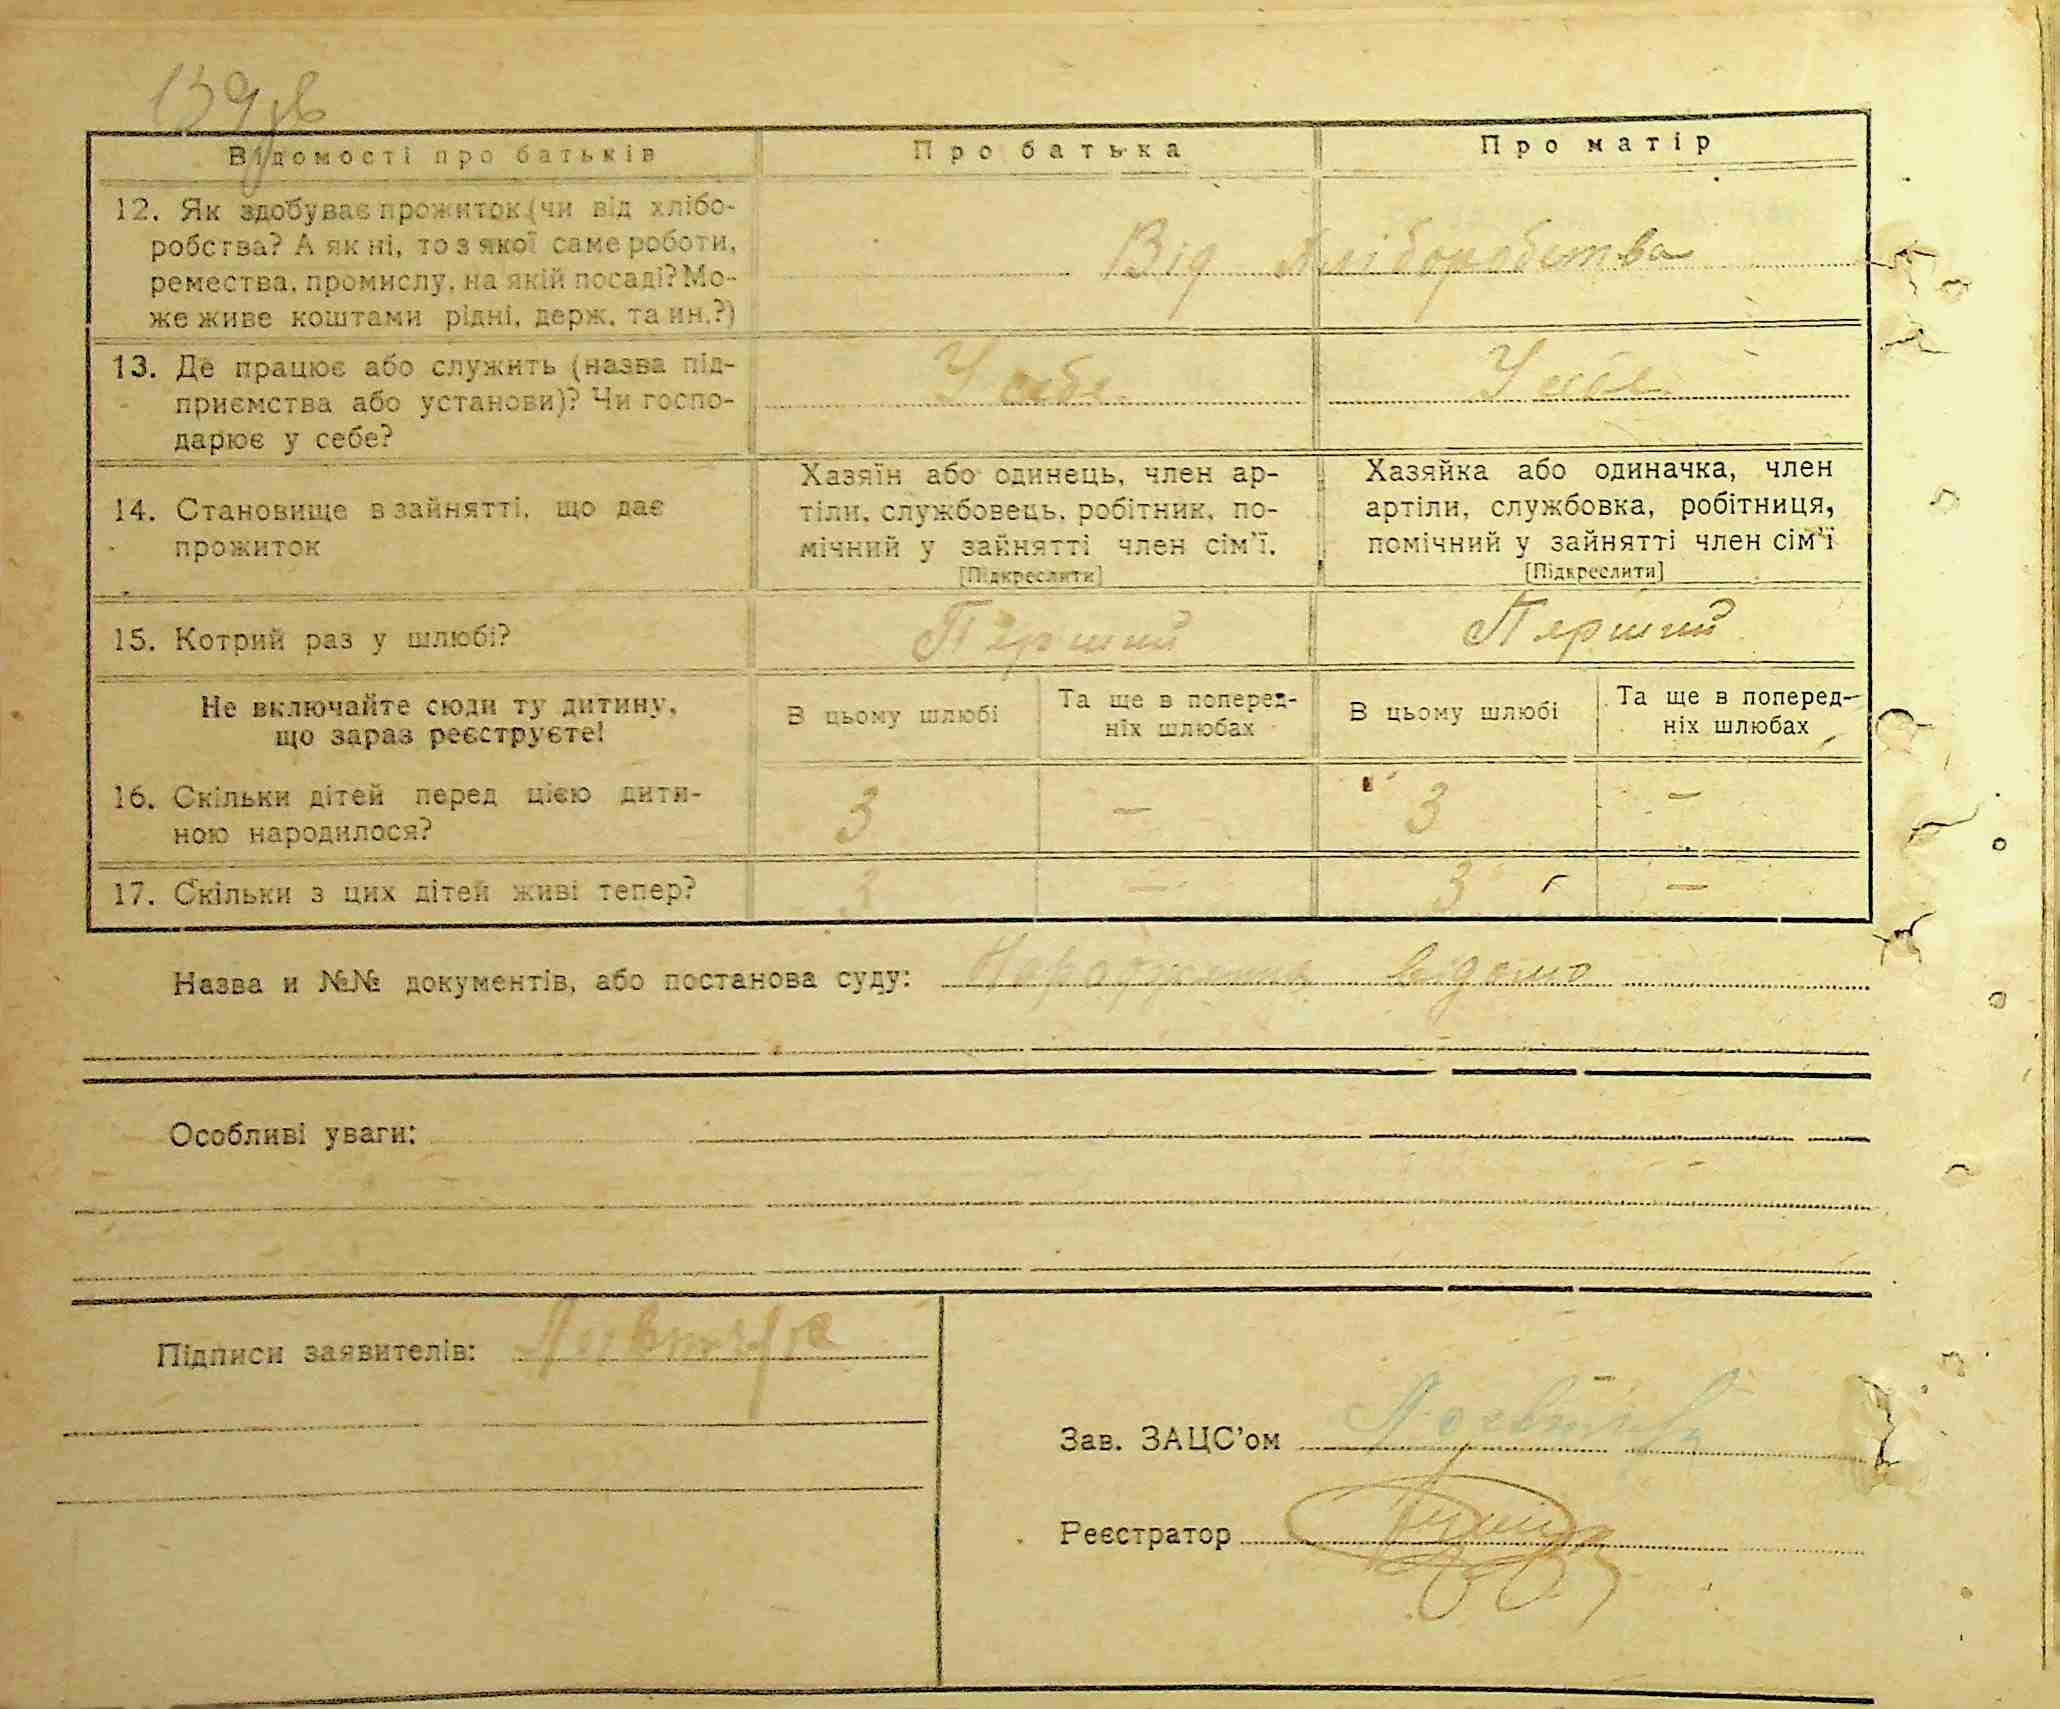 139
Відомості про батьків Про батька Про матір
12. Як здобуває прожиток (чи від хлібо-
робства? А як ні, то з якої саме роботи,
ремества, промислу, на якій посаді? Мо-
же живе коштами рідні, держ. та ин.?)
Від хліборобства
13. Де працює або служить (назва під-
приємства або установи)? Чи госпо-
дарює у себе?
У себе У себе
14. Становище в зайнятті, що дає
прожиток
Хазяїн або одинець, член ар-
тіли, службовець, робітник, по-
мічний у зайнятті член сім'ї.
[Підкреслити]
Хазяйка або одиначка, член
артіли, службовка, робітниця,
помічний у зайнятті член сім'ї
[Підкреслити]
15. Котрий раз у шлюбі? Перший Перший
Не включайте сюди ту дитину,
що зараз реєструєте!
В цьому шлюбі
Та ще в поперед-
ніх шлюбах
В цьому шлюбі
Та ще в поперед-
ніх шлюбах
16. Скільки дітей перед цією дити-
ною народилося?
3 – 3 –
17. Скільки з цих дітей живі тепер? 3 – 3 –
Назва и №№ документів, або постанова суду: відомо
Особливі уваги:
Підписи заявителів:
Зав. ЗАЦС'ом
Реєстратор